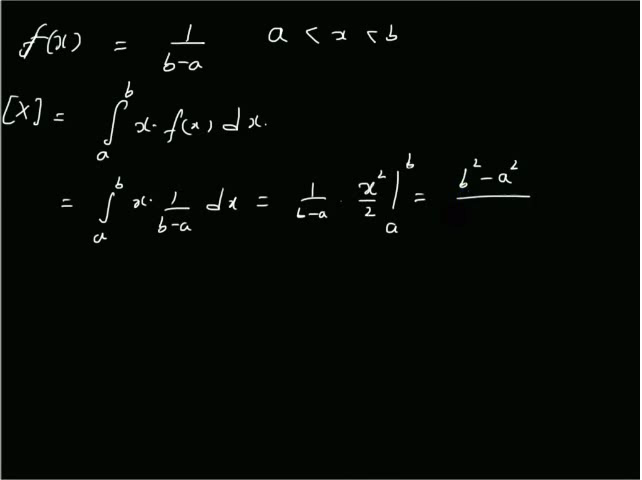 f(x) = 1/(b-a) a < x < b
[X] = ∫_a^b x · f(x) dx.
= ∫_a^b x · 1/(b-a) dx = 1/(b-a) · x²/2 |_a^b = b² - a²